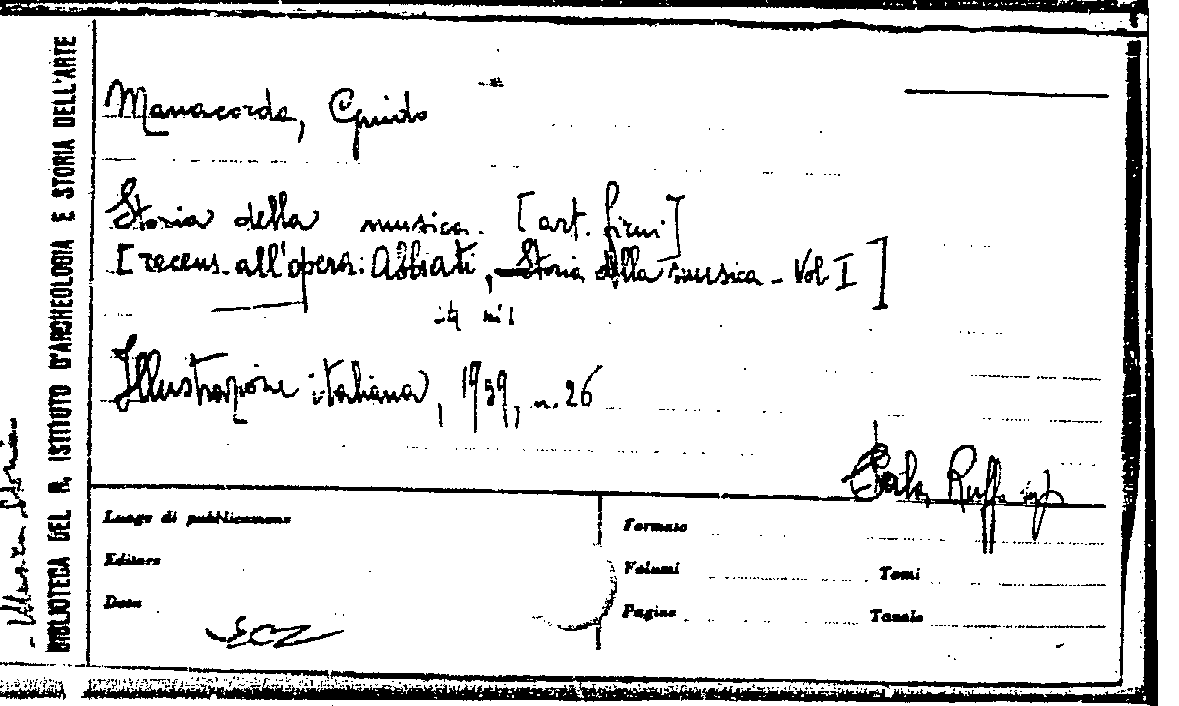 BIBLIOTECA DEL R. ISTITUTO D'ARCHEOLOGIA E STORIA DELL'ARTE
Manacorda, Guido
Storia della musica. [art. firm]
[recens. all'opera: Abbiati, Storia della musica - Vol I]
Illustrazione italiana, 1939, n. 26
Sala Ruffo
Luogo di pubblicazione
Editore
Data
Formato
Volumi
Tomi
Pagine
Tavole